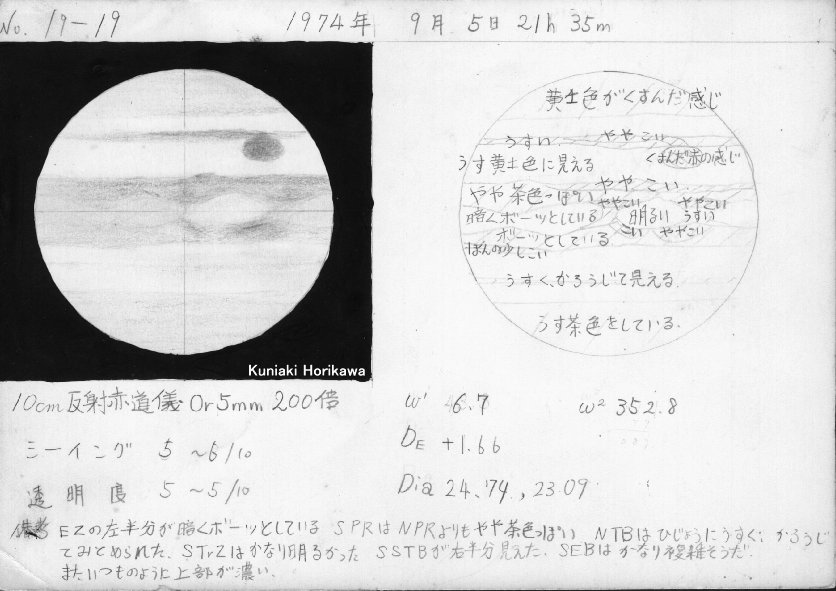 No. 17-19 1974年 9月 5日 21h 35m
黄土色がくすんだ感じ
うすい ややこい
うす黄土色に見える くすんだ赤の感じ
やや茶色っぽい ややこい
ややこい ややこい
暗くボーッとしている 明るい うすい
ボーッとしている こい ややこい
ほんの少しこい
うすく、かろうじて見える.
うす茶色をしている.
Kuniaki Horikawa
10cm反射赤道儀 Or5mm 200倍
ω¹ 46.7 ω² 352.8
シーイング 5 ~6/10
DE +1.66
透明度 5 ~5/10
Dia 24.74, 23.09
備考 EZの左半分が暗くボーッとしている SPRはNPRよりもやや茶色っぽい NTBはひじょうにうすく、かろうじ
てみとめられた、STrZはかなり明るかった SSTBが右半分見えた、SEBはかなり複雑そうだ.
またいつものように上部が濃い.